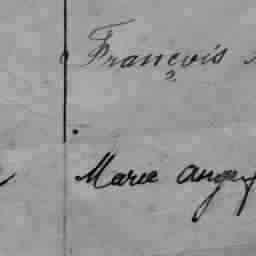 François
Marie Ange